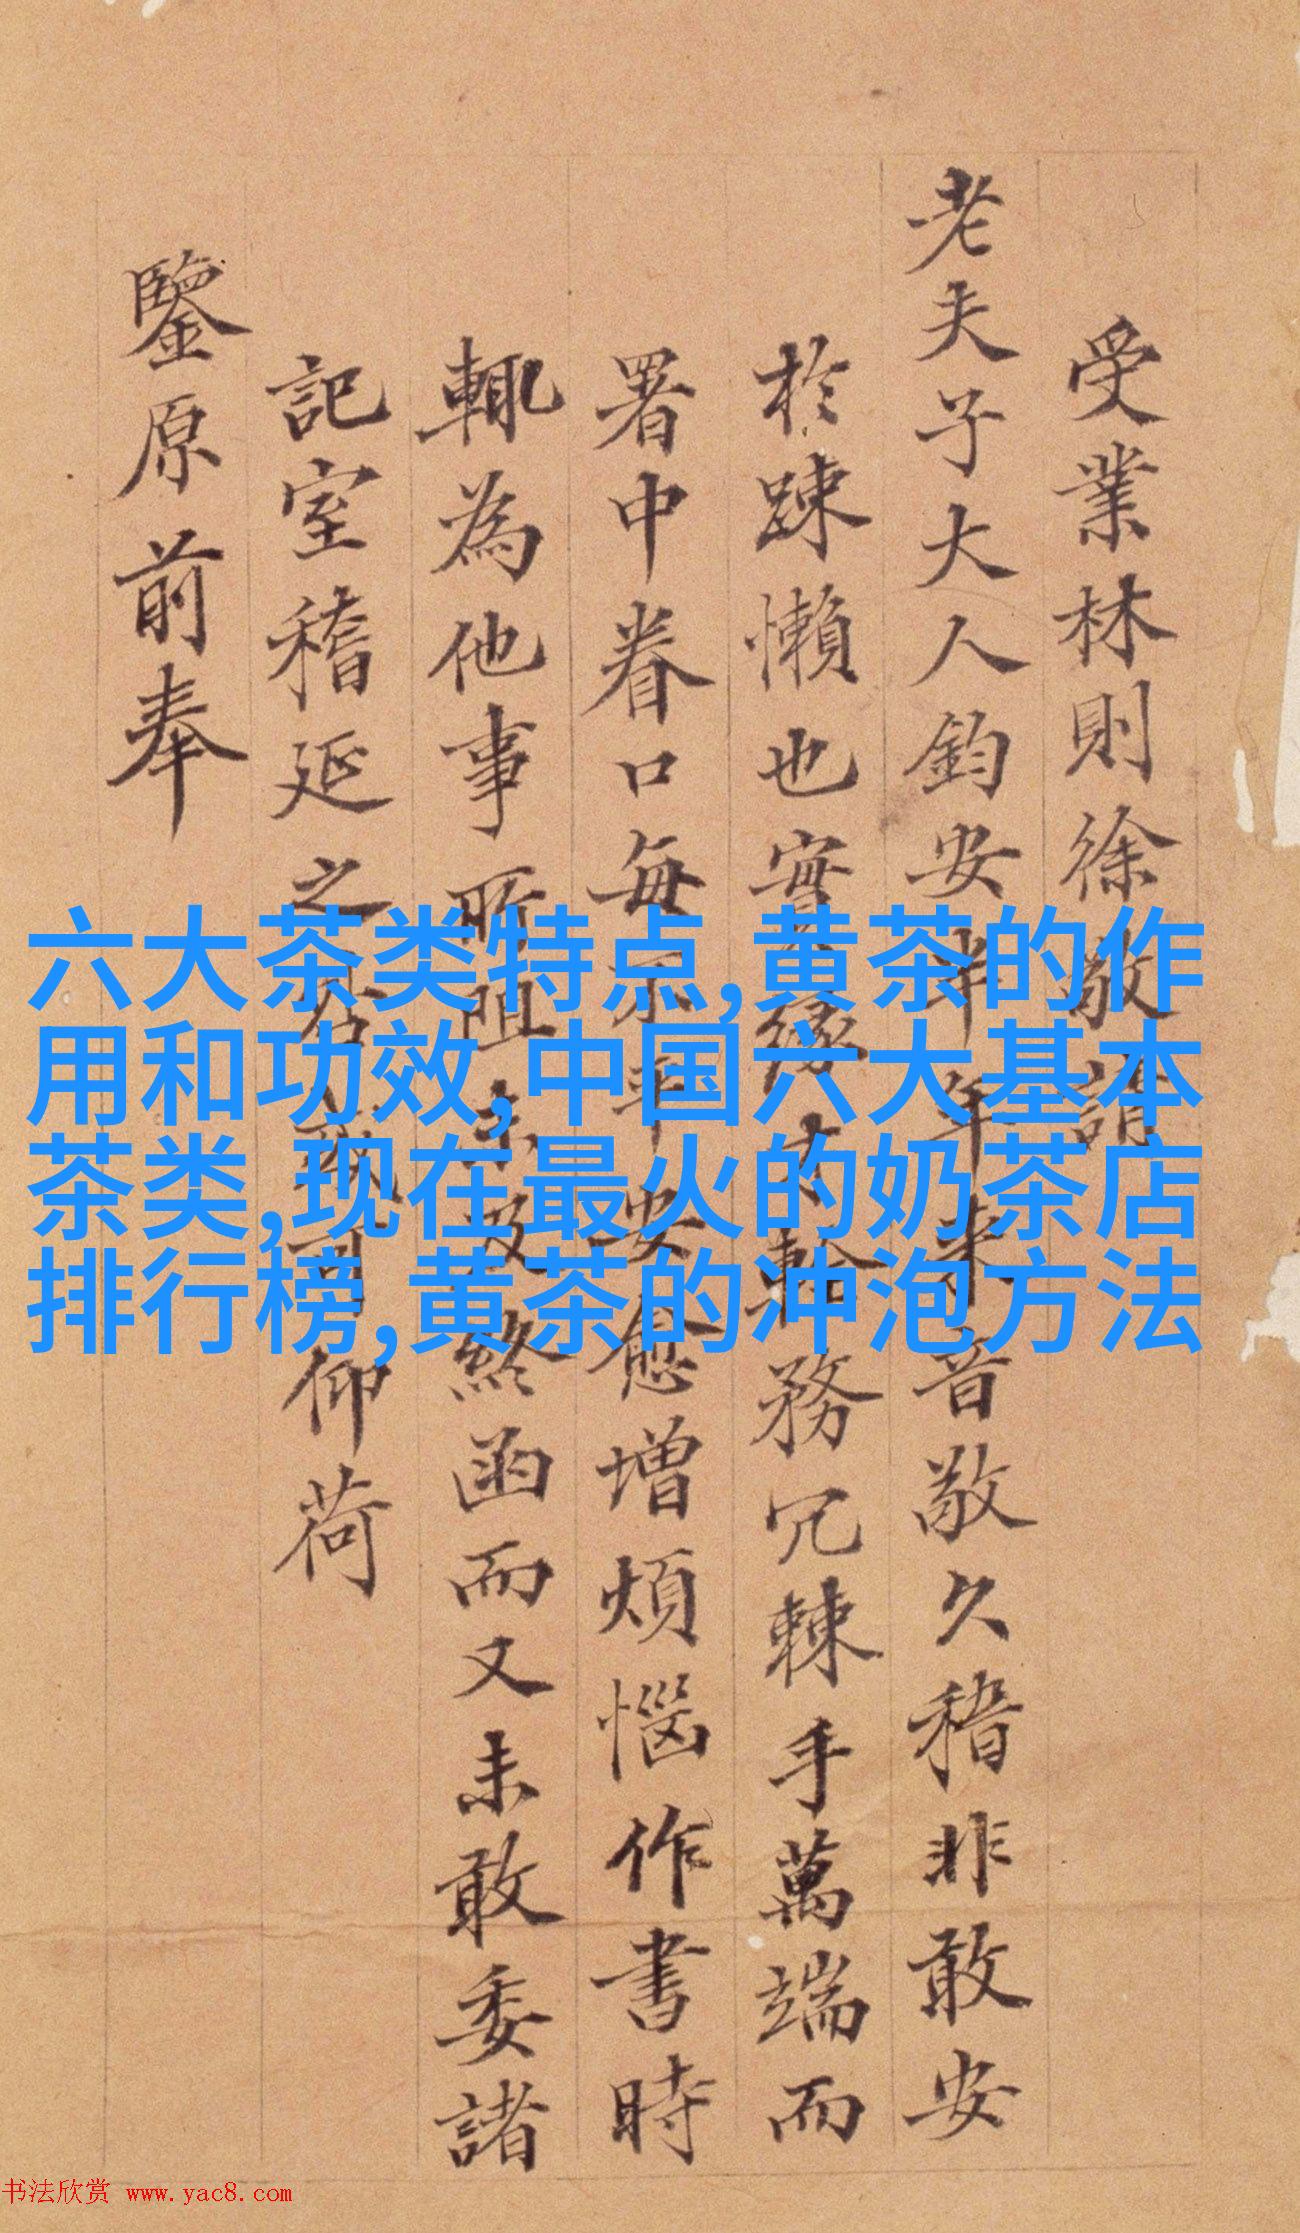 受業林則徐敬請
老夫子大人鈞安半年来音敬久稽非敢安
於踈懶也實緣務冗棘手萬端而
署中眷口每不平安愈增煩惱作書時
輒為他事所阻未及終函而又未敢委諸
記室稽延之仰荷
鑒原前奉
六大茶类特点,黄茶的作
用和功效,中国六大基本
茶类,现在最火的奶茶店
排行榜,黄茶的冲泡方法
书法欣赏 www.yac8.com